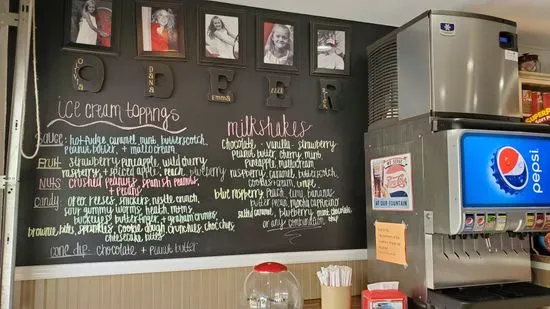 ODEER
Olivia
Dana
Emma
Ella
ice cream toppings
Sauce: hot fudge, caramel, mint, butterscotch,
peanut butter + maltd cream
Fruit: strawberry, pineapple, wild cherry
raspberry + spiced apple, peach, blueberry
Nuts: crushed peanuts, spanish peanuts,
Candy: oreo, reeses, snickers, nestle crunch,
sour gummy worms, heath, m+ms,
buckeye, butterfinger, + graham crumbs
brownie bits, sprinkles, cookie dough, crunchers, choc chips,
cheesecake bits
cone dip: chocolate + peanut butter
milkshakes
chocolate - vanilla - strawberry
peanut butter, cherry, mint
pineapple, maltd cream
raspberry, caramel, butterscotch,
cookies + cream, grape,
blue raspberry, peach, banana,
butter pecan, mocha cappuccino
salted caramel, blueberry, mint chocolate chip
or any combination
WE SERVE
PEPSI
AT OUR FOUNTAIN
pepsi
SUPER